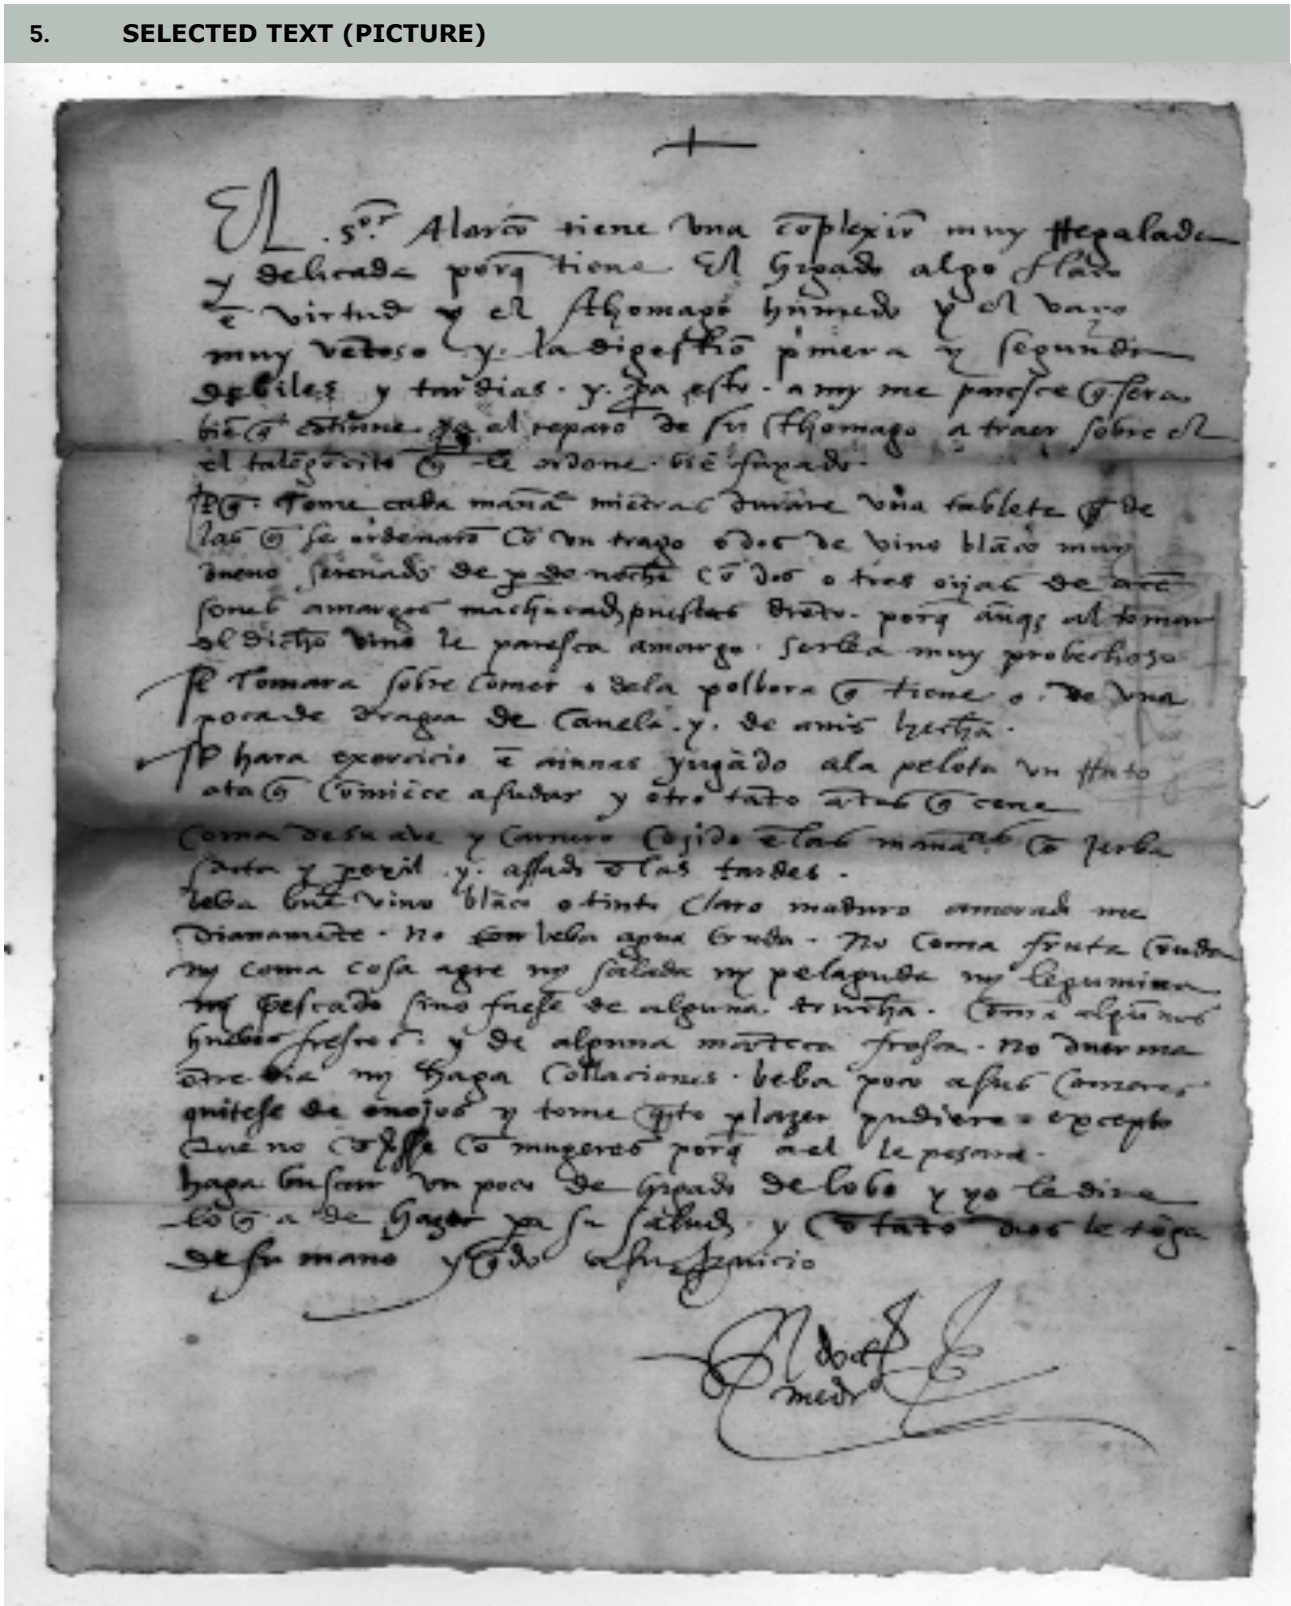 5. SELECTED TEXT (PICTURE)
El . s.or Alarcō tiene vna cōplexiō muy rregalada
y delicada porq̄ tiene El hygado algo flaco
ē virtud y el sthomago humedo y el vaço
muy vētoso y. la digestiō pimera y segunda
debiles y tardias. y. pa esto. a my me paresce q̄ sera
biē q̄ cōtinue pa el reparo de su sthomago a traer sobre el
el talēgōcito q̄ le ordene. biē
q̄. Tome cada mañāa miētras durare vna tableta q̄ de
las q̄ se ordenarō cō vn trago o dos de vino blāco muy
bueno serenado de noche cō dos o tres ojas de acē
sones amargos machucad puestas dētro. porq̄ āuq̄ al tomar
el dicho vino le paresca amargo. serle a muy probechoso
Tomara sobre comer o dela polbora q̄ tiene o. de vna
poca de dragea de canela. y. de anis hecha.
hara exercicio ē aiunas yugādo ala pelota vn rrato
ata q̄ comiēce a sudar y otro tāto ātes q̄ cene
coma de su ave y carnero cojido ē las mañāas cō yerba
sāta y perexil .y. assado ē las tardes.
beba buē vino blāco o tinto claro maduro me
dianamēte. no beba agua cruda. No coma fruta cruda
ny coma cosa agre ny salada ny ny legumina
ny pescado sino fuese de alguna trucha. Coma algunos
huebos frescos. y de alguna māteca fresca. no duerma
ētre dia ny haga Collaciones. beba poco a sus comeres
quitese de enojos y tome q̄to plazer pudiere excepto
que no cō mugeres porq̄ a el le pesara.
haga buscar vn poco de hygado de lobo y yo le dire
lo q̄ a de hazer pa su salud. y cō tāto dios le tēga
de su mano y q̄do a su
El doct